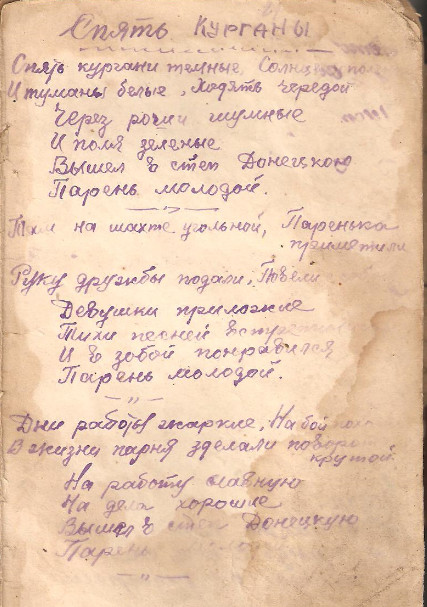 Спять Курганы
Спять кургани темные, Солнцем
И туманы белые, Ходять чередой
Через рощи шумные
И поля зеленые
Вышел в степ Донецкою
Парень молодой.
Там на шахте угольной, Паренька
приметили
Руку дружбы подали, Повели
Девушки пригожие
Тихи песней
И в забой понравился
Парень молодой.
Дни работы жаркие, На бой
В жизни парня зделали
крутой.
На работу славную
На дела хорошие
Вышел в степ Донецкую
Парень